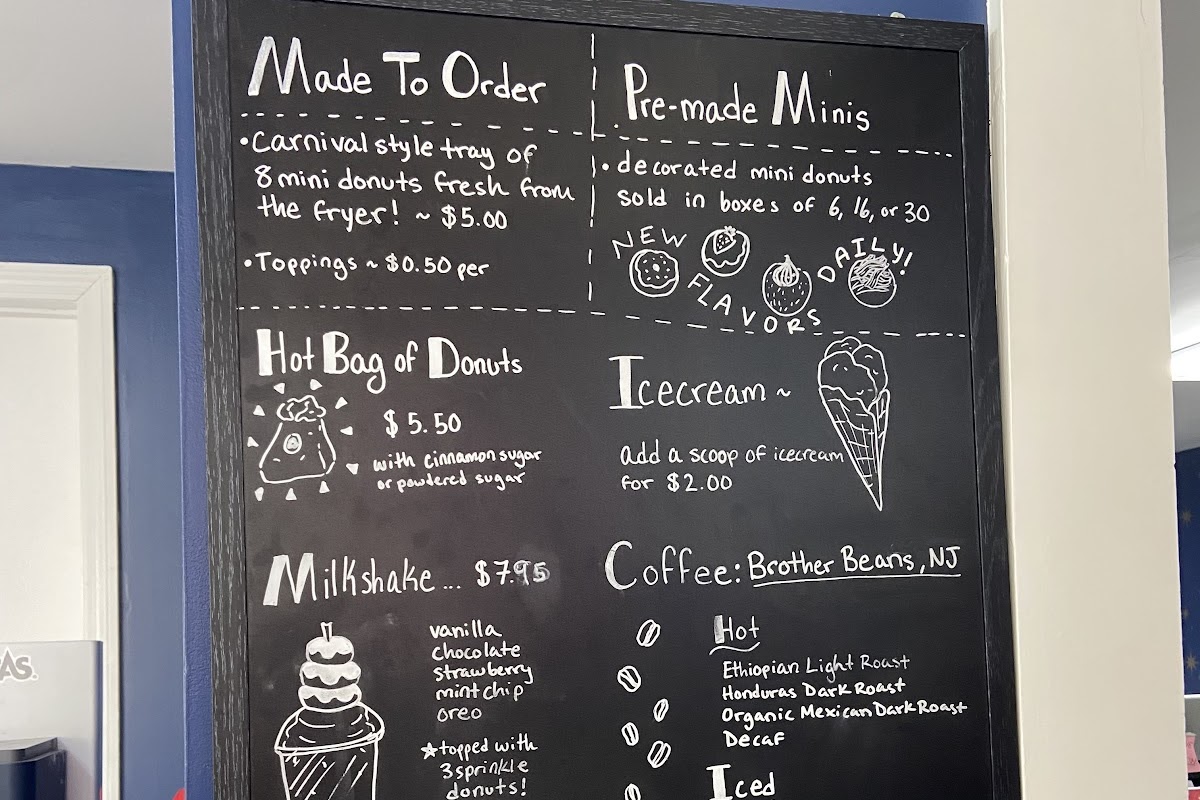 Made To Order
•Carnival style tray of
8 mini donuts fresh from
the fryer! ~ $5.00
•Toppings ~ $0.50 per
Pre-made Minis
•decorated mini donuts
sold in boxes of 6, 16, or 30
NEW
FLAVORS
DAILY!
Hot Bag of Donuts
$5.50
with cinnamon sugar
or powdered sugar
Icecream ~
add a scoop of icecream
for $2.00
Milkshake... $7.95
vanilla
chocolate
strawberry
mint chip
oreo
☆topped with
3 sprinkle
donuts!
Coffee: Brother Beans, NJ
Hot
Ethiopian Light Roast
Honduras Dark Roast
Organic Mexican Dark Roast
Decaf
Iced
AS.